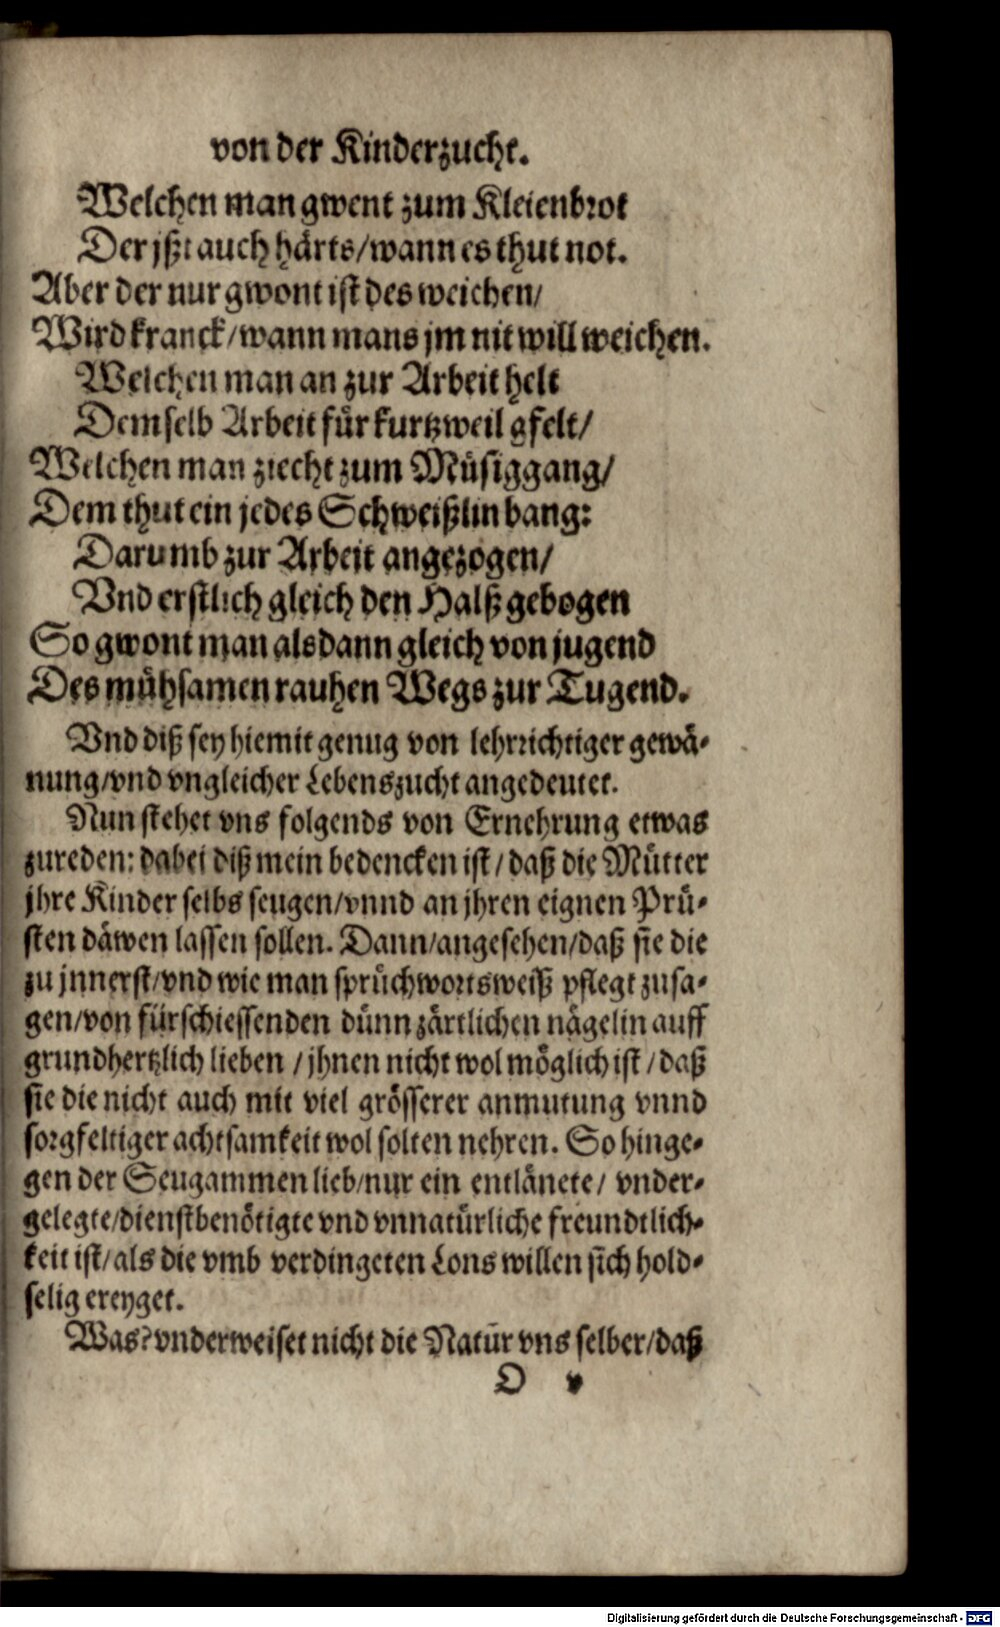 von der Kinderzucht.
Welchen man gwent zum Kleienbrot
Der jßt auch härts/wann es thut not.
Aber der nur gwont ist des weichen/
Wird kranck/wann mans jm nit will weichen.
Welchen man an zur Arbeit helt
Demselb Arbeit für kurtzweil gfelt/
Welchen man ziecht zum Müsiggang/
Dem thut ein jedes Schweißlin bang:
Darumb zur Arbeit angezogen/
Vnd erstlich gleich den Halß gebogen
So gwont man alsdann gleich von jugend
Des mühsamen rauhen Wegs zur Tugend.
Vnd diß sey hiemit genug von lehrrichtiger gewä-
nung/vnd vngleicher Lebenszucht angedeutet.
Nun stehet vns folgends von Ernehrung etwas
zureden: dabei diß mein bedencken ist/daß die Mütter
jhre Kinder selbs seugen/vnnd an jhren eignen Prü-
sten däwen lassen sollen. Dann/angesehen/daß sie die
zu jnnerst/vnd wie man sprüchwortsweiß pflegt zusa-
gen/von fürschiessenden dünn zärtlichen nägelin auff
grundhertzlich lieben/jhnen nicht wol möglich ist/daß
sie die nicht auch mit viel grösserer anmutung vnnd
sorgfeltiger achtsamkeit wol solten nehren. So hinge-
gen der Seugammen lieb/nur ein entlänete/ vnder-
gelegte/dienstbenötigte vnd vnnatürliche freundtlich-
keit ist/als die vmb verdingeten Lons willen sich hold-
selig ereyget.
Was? vnderweiset nicht die Natur vns selber/daß
O v
Digitalisierung gefördert durch die Deutsche Forschungsgemeinschaft - DFG